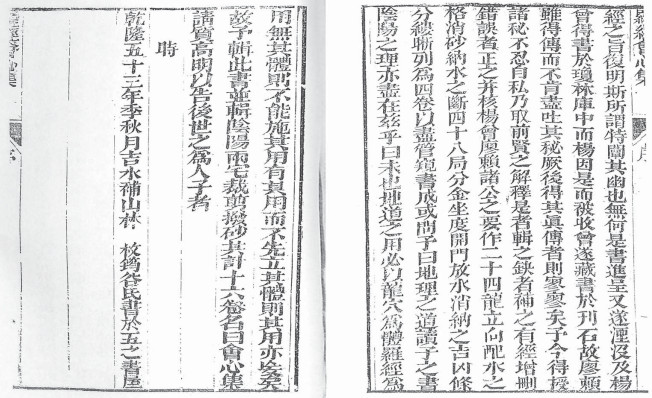 羅經會心集 序
經之旨復明斯所謂特闡其幽也無何是書進呈又遂湮沒及楊
曾得書於瓊林庫中而楊因是而被收曾遂藏書於刊石故廖賴
雖得傳而不肯盡吐其秘厥後得其眞傳者則寥寥矣予今得授
諸秘不忍自私乃取前賢之解釋是者輯之缺者補之有經增刪
錯誤者正之并核楊曾廖賴諸公之要作二十四龍立向配水之
格消砂納水之斷四十八局分金坐度開門放水消納之吉凶條
分縷晰列為四卷以盡管窺書成或問予曰地理之道讀子之書
陰陽之理亦盡在茲乎曰未也地道之用必以龍穴為體羅經為
用無其體則不能施其用有其用而不先立其體則其用亦矣
故予輯此書並輯陰陽兩宅裁剪撥砂其計十六卷名曰會心集
請質高明以告後世之為人子者
時
乾隆五十三年季秋月吉水補山林 枚筠谷氏書於五之書屋